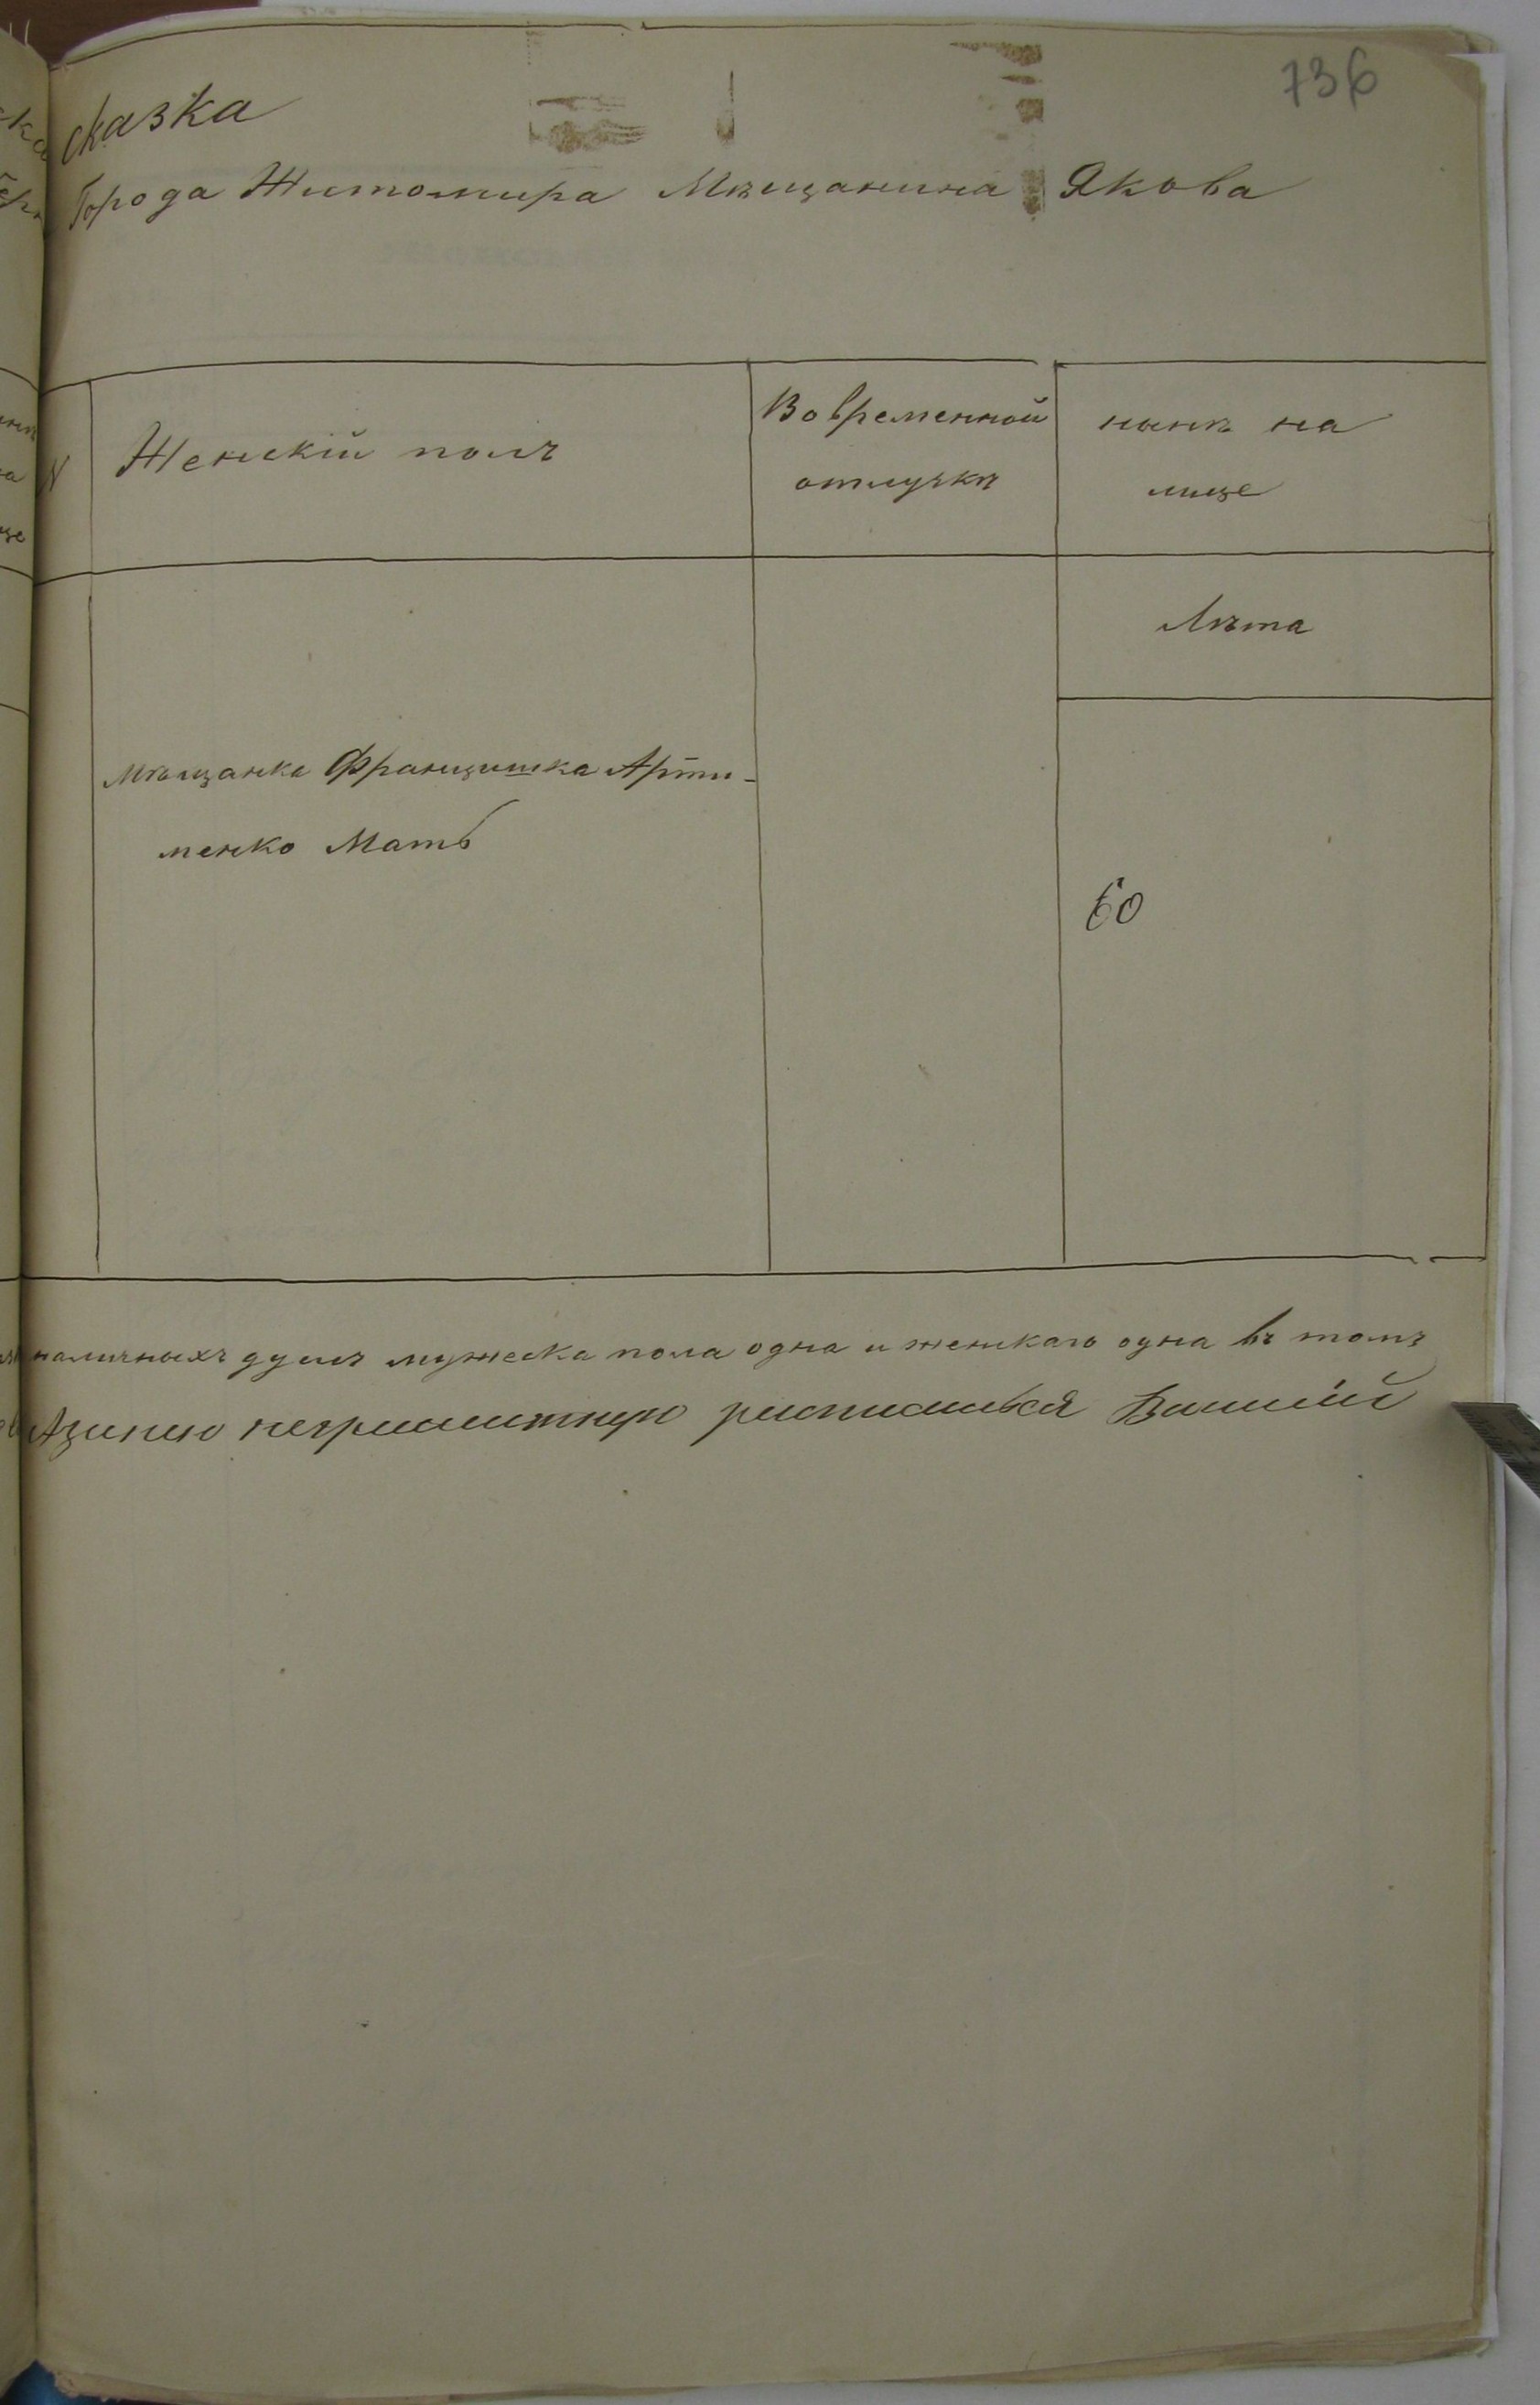 736
сказка
Города Житомира Мѣщанина Якова
N
Женскій полъ
Во временной
отлучкѣ
нынѣ на
лице
Лѣта
Мѣщанка Францишка Арти-
менко Мать
60
наличныхъ душъ мужеска пола одна и женскаго одна въ томъ
неграмотную росписался